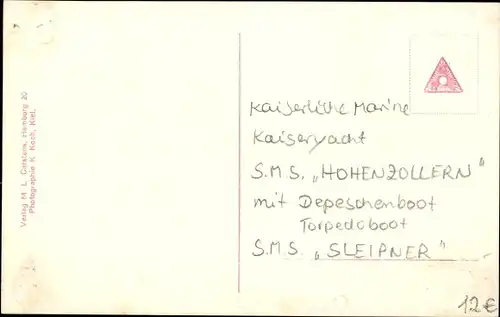 Verlag M. L. Carstens, Hamburg 20
Photographie K. Koch, Kiel.
Kaiserliche Marine
Kaiseryacht
S.M.S. „HOHENZOLLERN"
mit Depeschenboot
Torpedoboot
S.M.S. „SLEIPNER"
12€